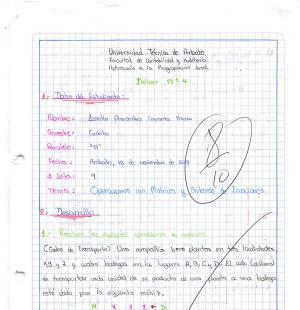 Universidad Técnica de Ambato
Facultad de Contabilidad y Auditoría
a la Programación Lineal
Deber Nº 4
1.- Datos del Estudiante:
Nombre:
Semestre: Cuarto
Paralelo: "A"
Fecha: Ambato, de noviembre de
# Lista: 9
Tema: Operaciones con Matrices y Sistemas de Ecuaciones
8
10
2.- Desarrollo
1.- Resolver las siguientes operaciones de matrices
(Costos de Transporte) Una compañía tiene plantas en tres localidades,
X, Y y Z y cuatro bodegas en los lugares A, B, C y D. El costo (dólares)
de transportar cada unidad de su producto de una planta a una bodega
está dado por la siguiente matriz.
X Y Z